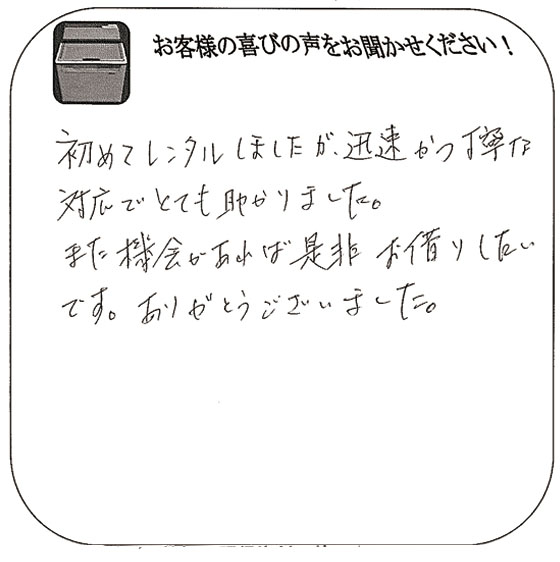 お客様の喜びの声をお聞かせください！
初めてレンタルしましたが、迅速かつ丁寧な
対応でとても助かりました。
また機会があれば是非お借りしたい
です。ありがとうございました。